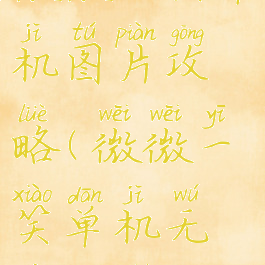 jī tú piàn gōng
机图片攻
lüè wēi wēi yī
略(微微一
xiào dān jī wú
笑单机无